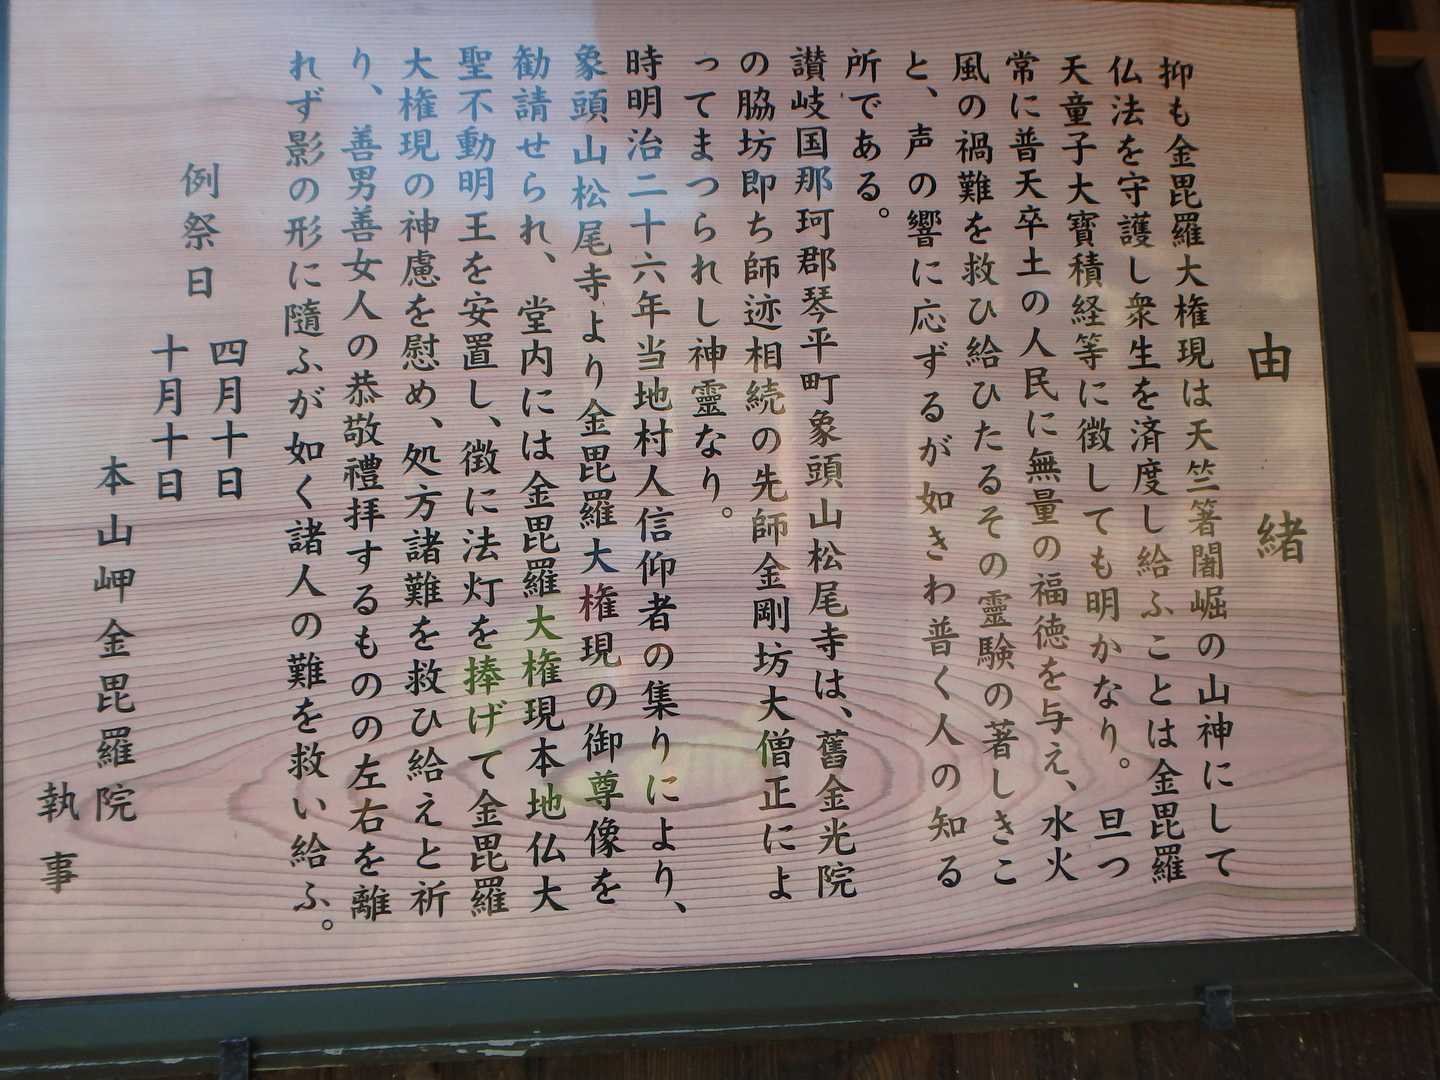 由緒
抑も金毘羅大権現は天竺箸闍崛の山神にして
仏法を守護し衆生を済度し給ふことは金毘羅
天童子大寶積経等に徴しても明かなり。旦つ
常に普天卒土の人民に無量の福徳を与え、水火
風の禍難を救ひ給ひたるその霊験の著しきこ
と、声の響に応ずるが如きわ普く人の知る
所である。
讃岐国那珂郡琴平町象頭山松尾寺は、舊金光院
の脇坊即ち師迹相続の先師金剛坊大僧正によ
ってまつられし神靈なり。
時明治二十六年当地村人信仰者の集りにより、
象頭山松尾寺より金毘羅大権現の御尊像を
勧請せられ、堂内には金毘羅大権現本地仏大
聖不動明王を安置し、徴に法灯を捧げて金毘羅
大権現の神慮を慰め、処方諸難を救ひ給えと祈
り、善男善女人の恭敬禮拝するものの左右を離
れず影の形に隨ふが如く諸人の難を救い給ふ。
例祭日
四月十日
十月十日
本山岬金毘羅院
執事